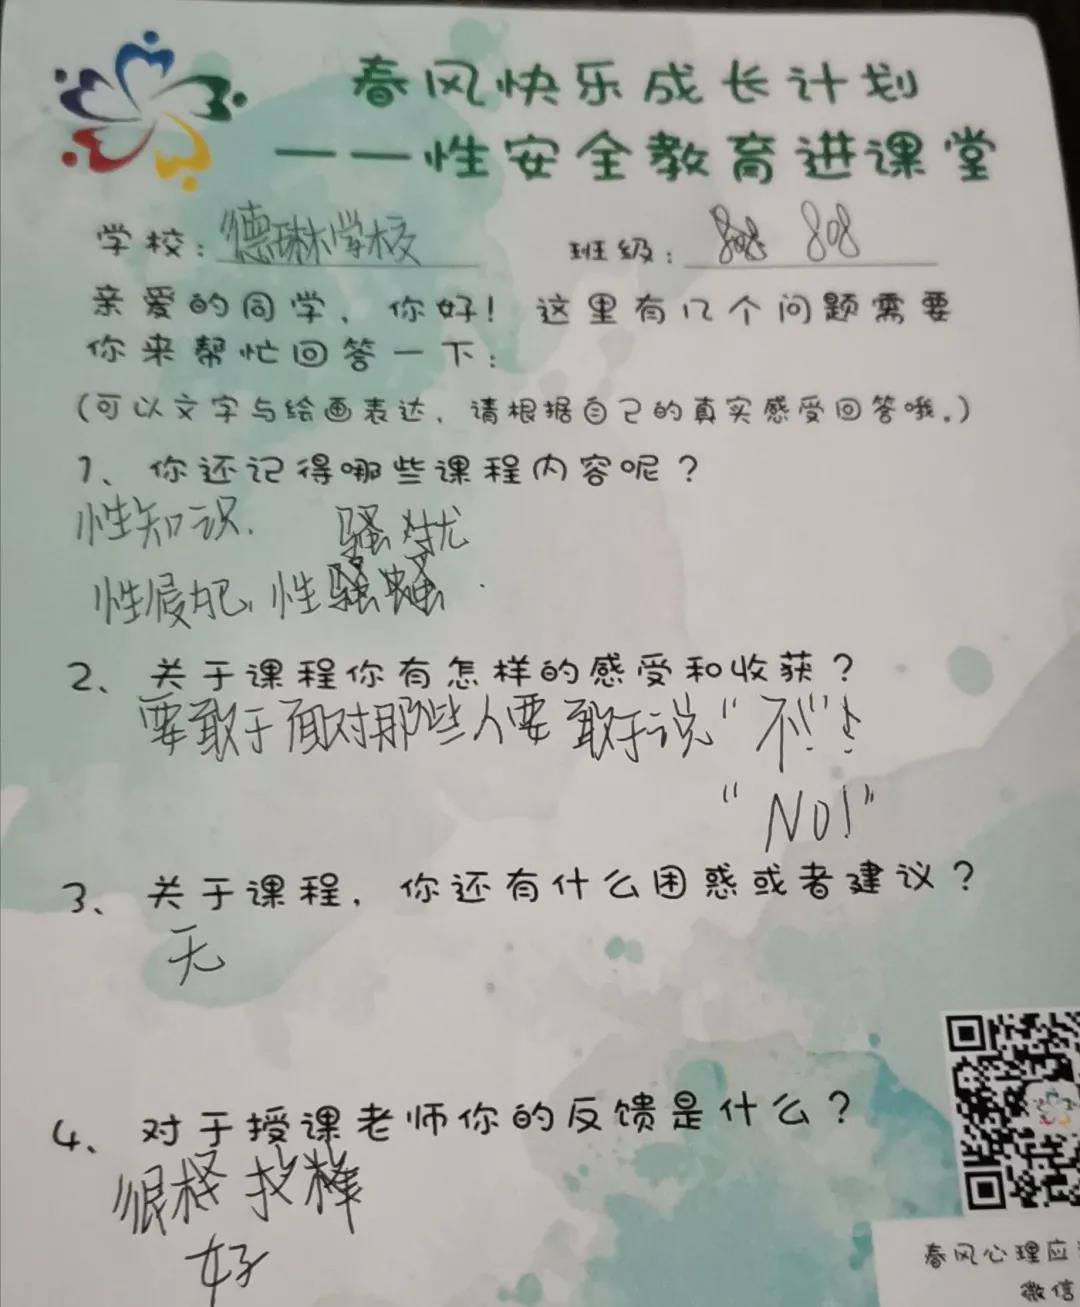 春风快乐成长计划
——性安全教育进课堂
学校：德琳学校 班级：808
亲爱的同学，你好！这里有几个问题需要
你来帮忙回答一下：
（可以文字与绘画表达，请根据自己的真实感受回答哦。）
1、你还记得哪些课程内容呢？
性知识. 骚扰
性侵犯, 性
2、关于课程你有怎样的感受和收获？
要敢于面对那些人要敢于说“不！”！
“NO！”
3、关于课程，你还有什么困惑或者建议？
无
4、对于授课老师你的反馈是什么？
很棒
好
春风心理应
微信